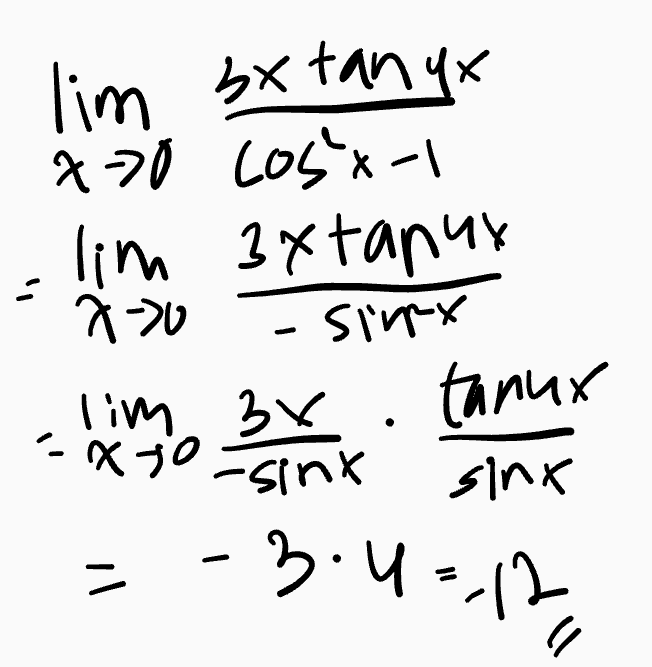 lim x→0 3x tan 4x / cos²x - 1
= lim x→0 3x tan 4x / - sin²x
= lim x→0 3x / -sin x · tan 4x / sin x
= - 3 · 4 = -12